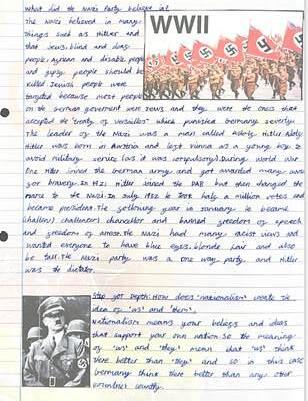 what did the Nazi Party believe in?
WWII
The Nazi believed in many
things such as Hitler and
that Jews, blind and
people, and disable people
and gypsy people should be
killed. Jewish people were
targeted because most people
in the German goverment were Jews and they were the ones that
accepted the 'treaty of Versailles' which punished Germany severly.
The leader of the Nazi was a man called Adolf Hitler. Adolf
Hitler was born in Austria and left vienna as a young boy to
avoid military service (as it was compulsory). During world war
One Hitler joined the German army and got awarded many
for bravery. In 1921 Hitler joined the DAP but then changed the
name to the Nazi. In July 1932 he took half a million votes and
became president. The following year in January he became
challencer chancellor and banned freedom of speech
and freedom of The Nazi had many racist views and
wanted everyone to have blue eyes, blonde hair and also
be tall. The Nazi party was a one way party, and Hitler
was the dictator.
Step for Depth: How does 'nationalism' create the
idea of 'us' and 'them'.
Nationalism means your beliefs and ideas
that support your own nation. So the meaning
of 'us' and 'they' mean that 'us' think
there better than 'they' and so in this case
Germany think there better than any other
country.